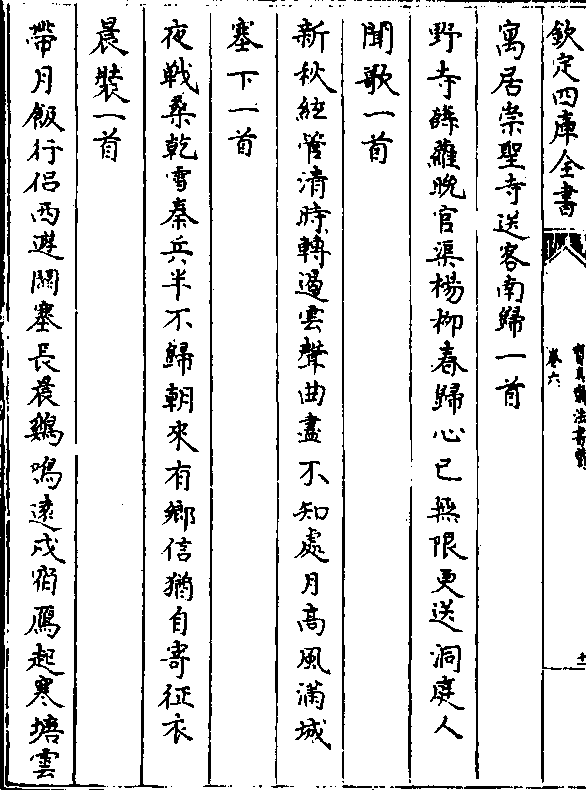 欽定四庫全書
卷六
寓居崇聖寺送客南歸一首
野寺薜蘿晚官渠楊柳春歸心已無限更送洞庭人
聞歌一首
新秋絃管清時轉遏雲聲曲盡不知處月高風滿城
塞下一首
夜戰桑乾雪秦兵半不歸朝來有鄉信猶自寄征衣
晨裝一首
帶月飯行侶西遊關塞長晨鷄鳴遠戍宿鴈起寒塘雲